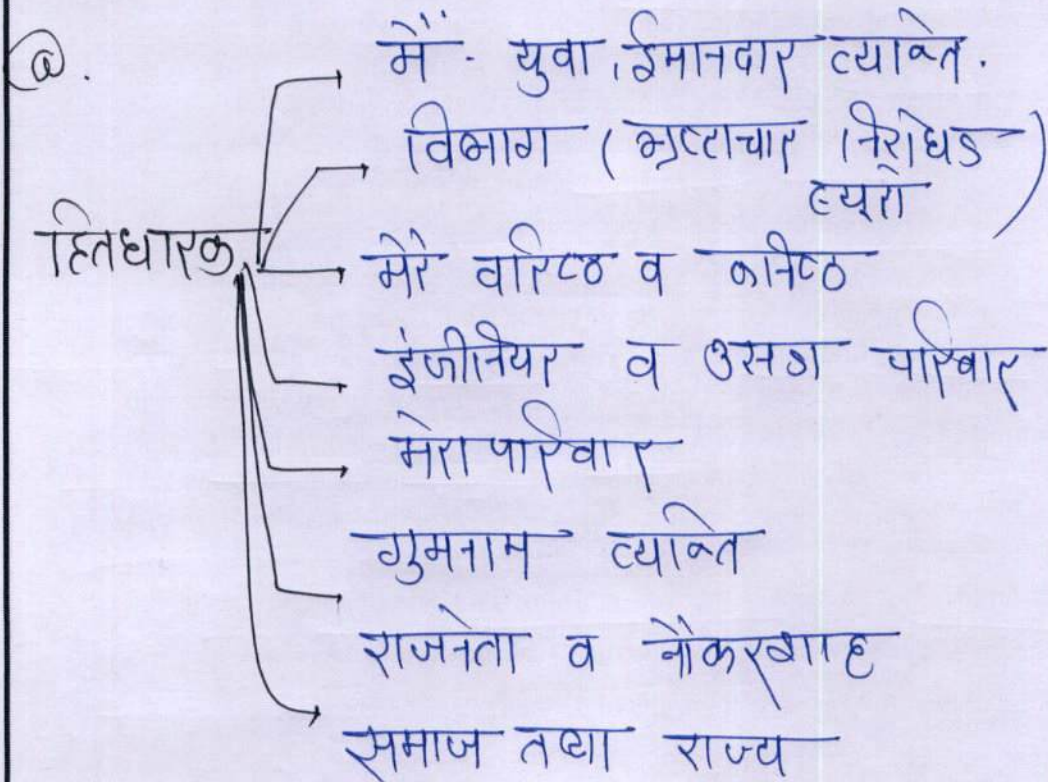 @.
मैं - युवा, ईमानदार व्यक्ति.
विभाग (भ्रष्टाचार निरोधक
ब्यूरो)
हितधारक
मेरे वरिष्ठ व कनिष्ठ
इंजीनियर व उसका परिवार
मेरा परिवार
गुमनाम व्यक्ति
राजनेता व नौकरशाह
समाज तथा राज्य